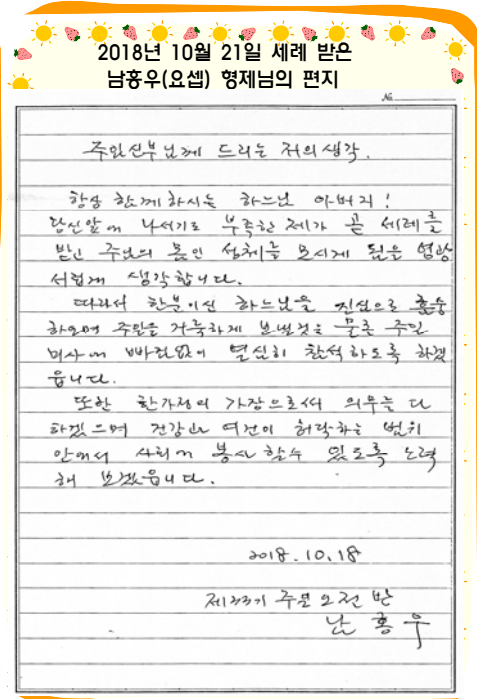 2018년 10월 21일 세례 받은
남홍우(요셉) 형제님의 편지
№
주임신부님께 드리는 저의생각.
항상 함께하시는 하느님 아버지!
당신앞에 나서기도 부족한 제가 곧 세례를
받고 주님의 몸인 성체를 모시게 됨은 영광
서럽게 생각합니다.
따라서 한분이신 하느님을 진심으로 흠숭
하오며 주일을 거룩하게 보낼것을 물론 주일
미사에 빠짐없이 열심히 참석하도록 하겠
읍니다.
또한 한가정의 가장으로써 의무를 다
하겠으며 건강과 여건이 허락하는 범위
안에서 사회에 봉사 할수 있도록 노력
해 보겠읍니다.
2018.10.18
제33기 주일오전 반
남홍우